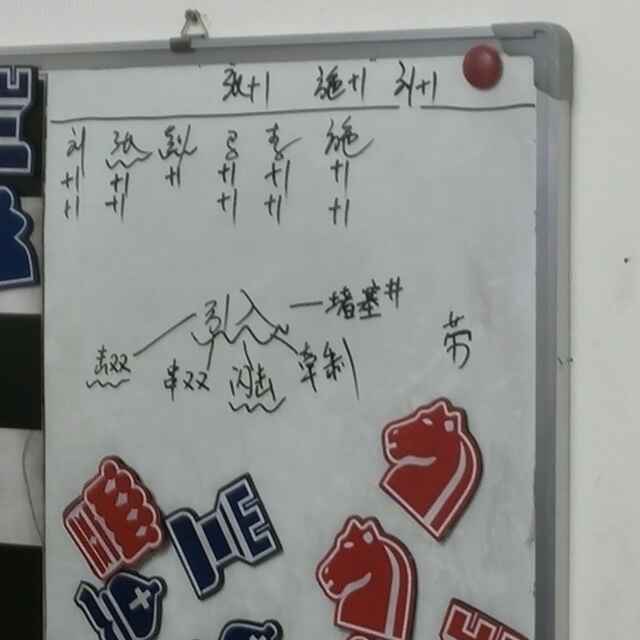 张+1 施+1 刘+1
刘 张 彭 马 李 施
+1 +1 +1 +1 +1 +1
+1 +1 +1 +1 +1
引入 — 堵塞#
击双 串双 闪击 牵制
劳